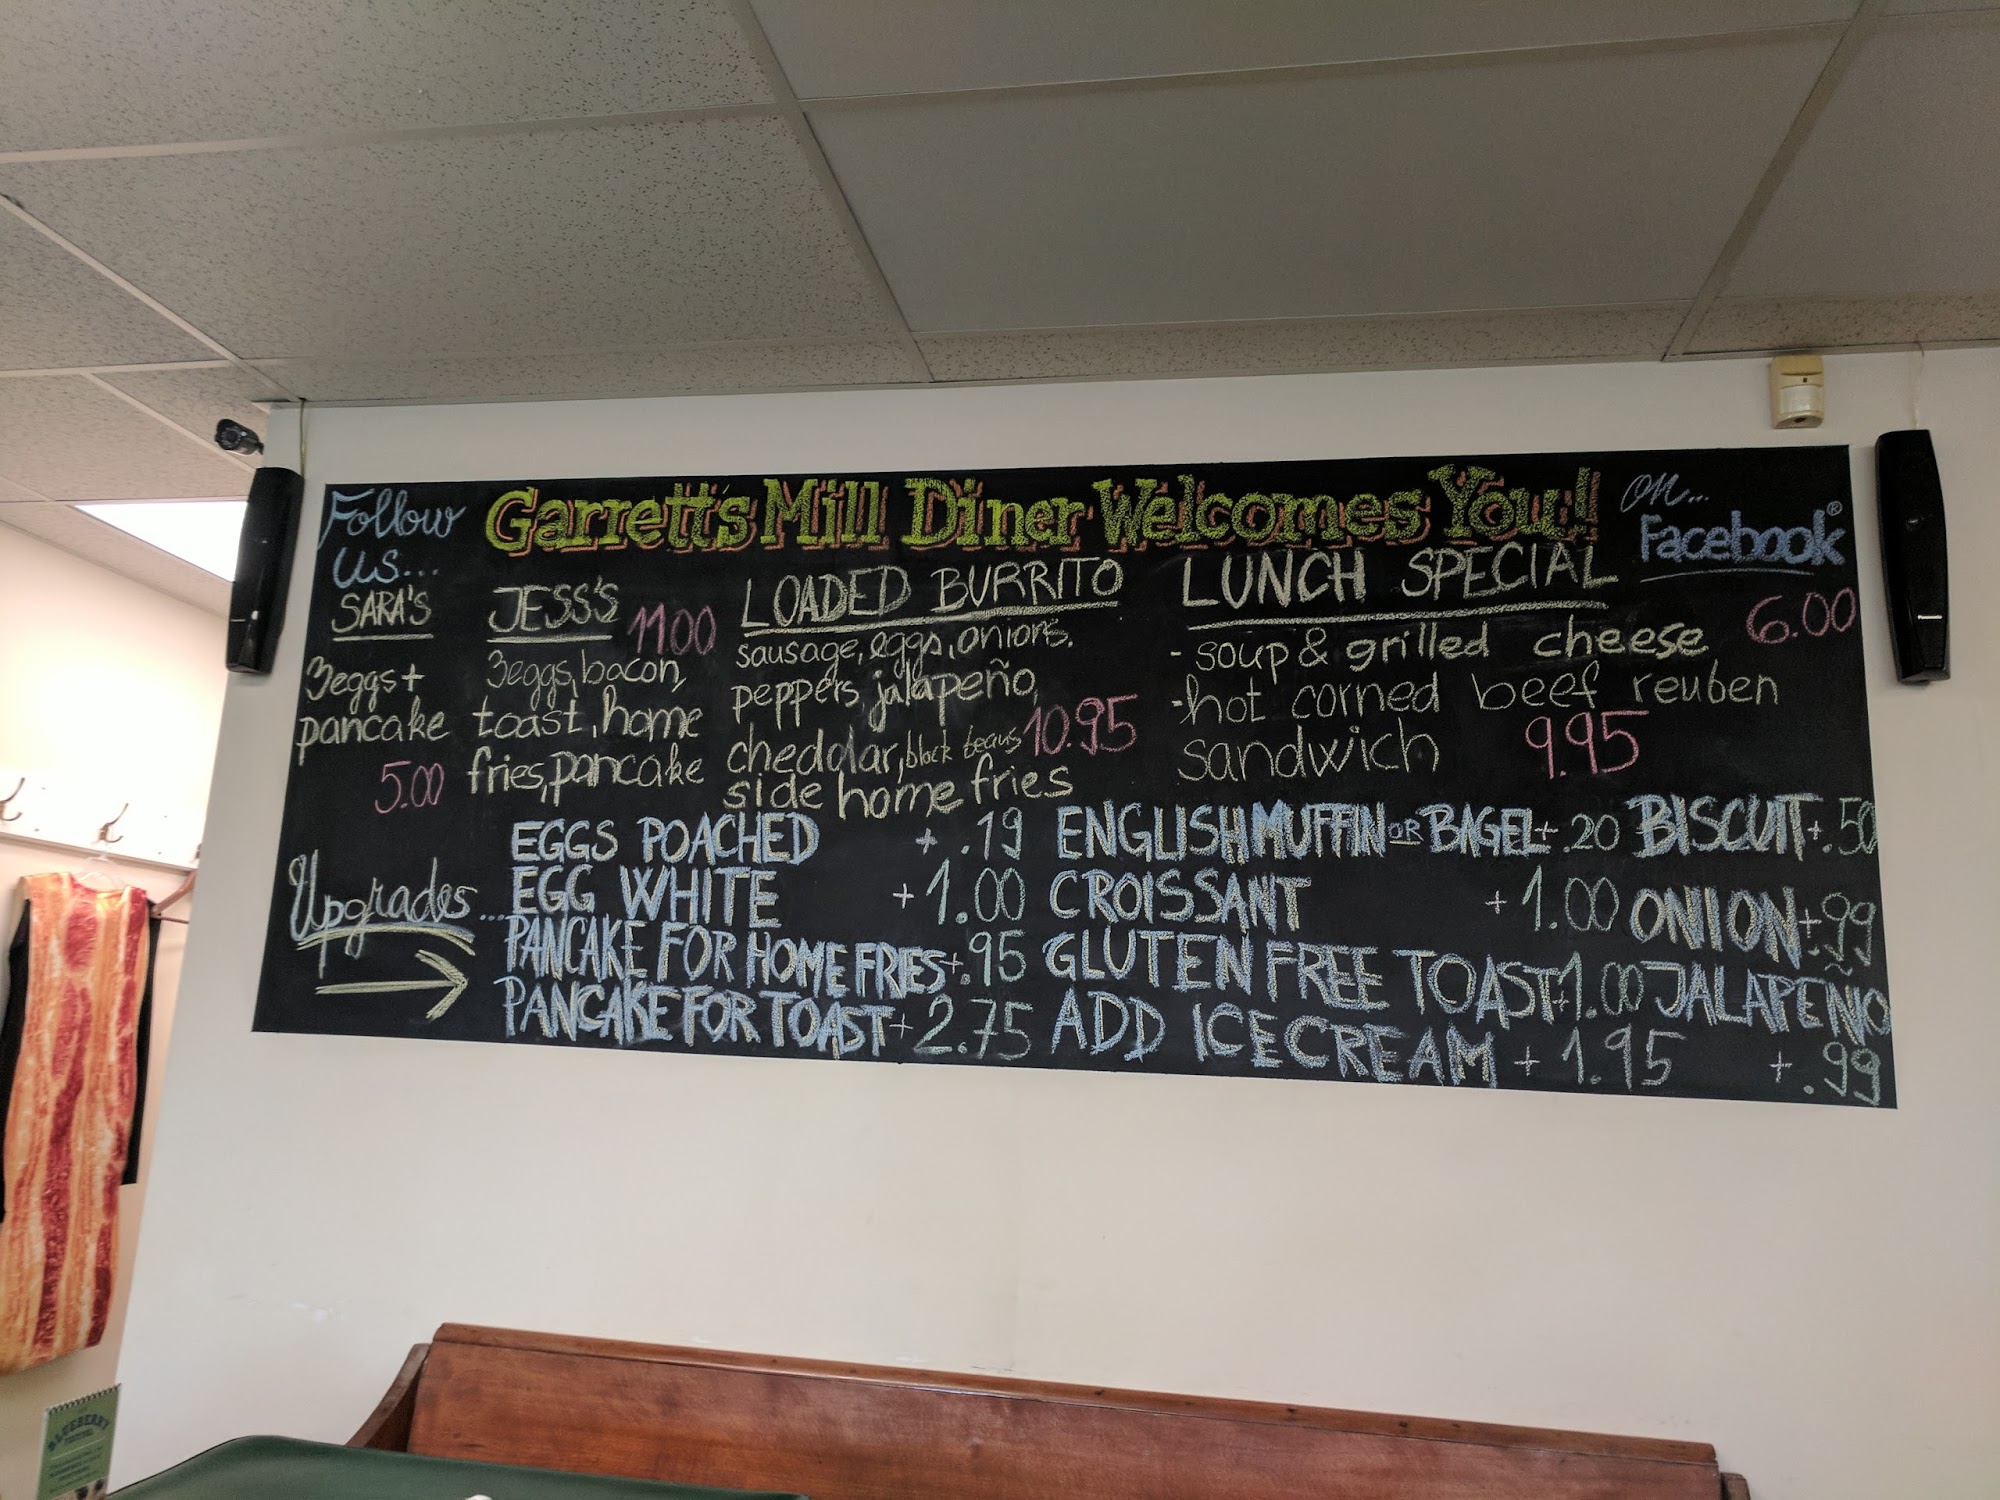 Follow us...
Garrett's Mill Diner Welcomes You!
on... Facebook®
SARA'S
3eggs +
pancake
5.00
JESS'S 11.00
3eggs, bacon,
toast, home
fries, pancake
LOADED BURRITO
sausage, eggs, onions,
peppers, jalapeño,
cheddar, black beans 10.95
side home fries
LUNCH SPECIAL
- soup & grilled cheese 6.00
- hot corned beef reuben
sandwich 9.95
Upgrades...
EGGS POACHED + .19
EGG WHITE + 1.00
PANCAKE FOR HOME FRIES + .95
PANCAKE FOR TOAST + 2.75
ENGLISH MUFFIN OR BAGEL + .20
CROISSANT + 1.00
GLUTEN FREE TOAST + 1.00
ADD ICE CREAM + 1.95
BISCUIT + .50
ONION + .99
JALAPEÑO
+ .99
BLUEBERRY